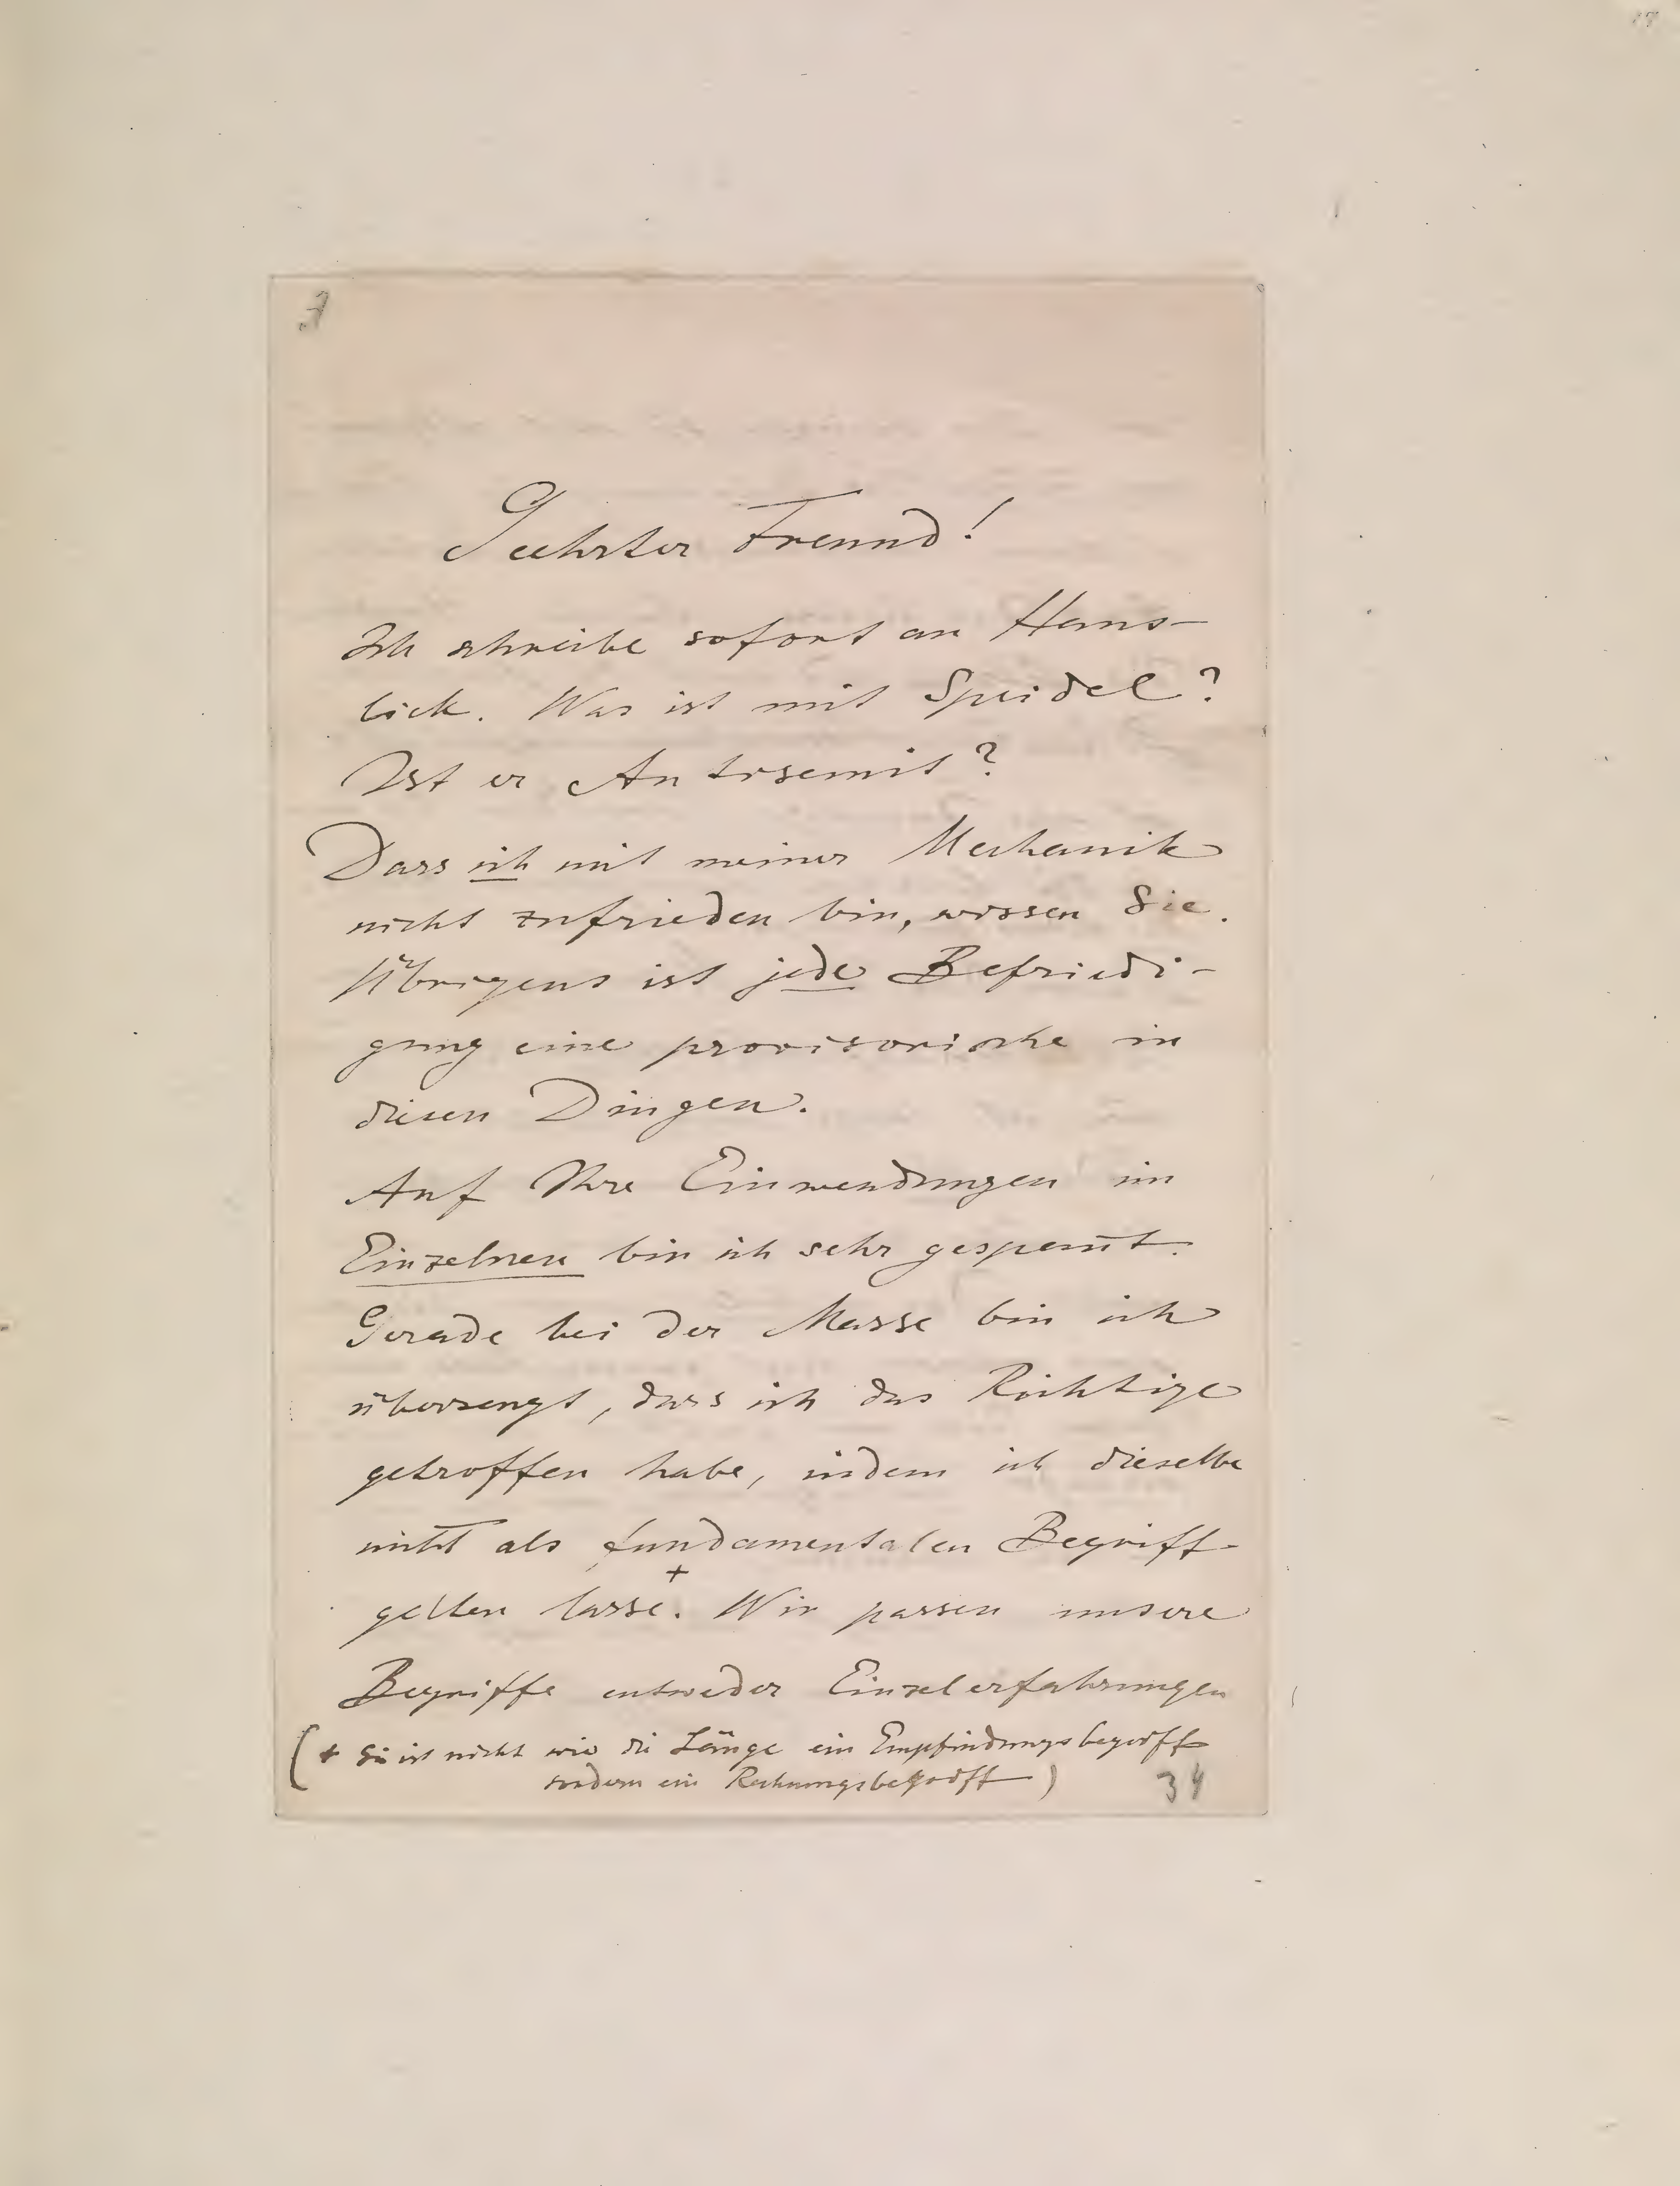 Geehrter Freund!
Ich schreibe sofort an Hans-
lick. Was ist mit Speidel?
Ist er Antisemit?
Dass ich mit meiner Mechanik
nicht zufrieden bin, wissen Sie.
Übrigens ist jede Befriedi-
gung eine provisorische in
diesen Dingen.
Auf Ihre Einwendungen im
Einzelnen bin ich sehr gespannt.
Gerade bei der Masse bin ich
überzeugt, dass ich das Richtige
getroffen habe, indem ich dieselbe
nicht als fundamentalen Begriff
gelten lasse.+ Wir passen unsere
Begriffe entweder Einzelerfahrungen
(+ Sie ist nicht wie die Länge ein Empfindungsbegriff
sondern ein Rechnungsbegriff)
34